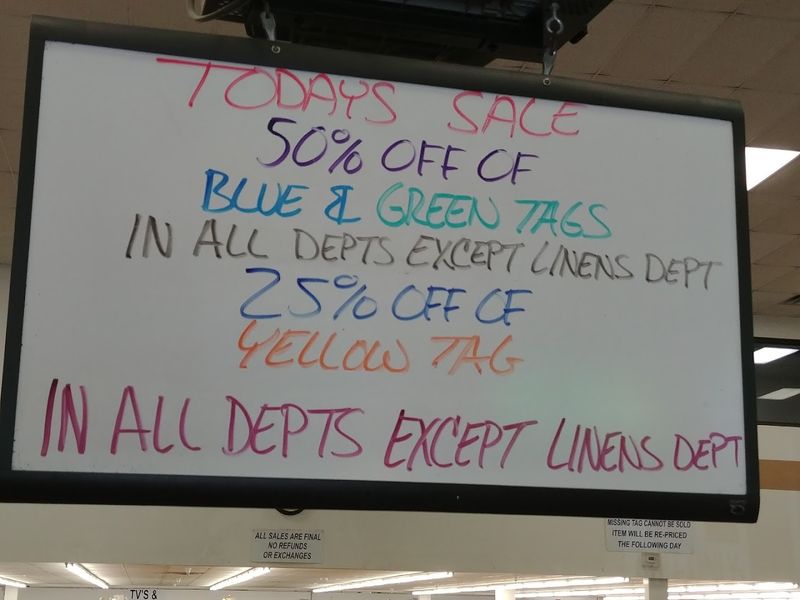 TODAYS SALE
50% OFF OF
BLUE & GREEN TAGS
IN ALL DEPTS EXCEPT LINENS DEPT
25% OFF OF
YELLOW TAG
IN ALL DEPTS EXCEPT LINENS DEPT
ALL SALES ARE FINAL
NO REFUNDS
OR EXCHANGES
MISSING TAG CANNOT BE SOLD
ITEM WILL BE RE-PRICED
THE FOLLOWING DAY
TV'S &